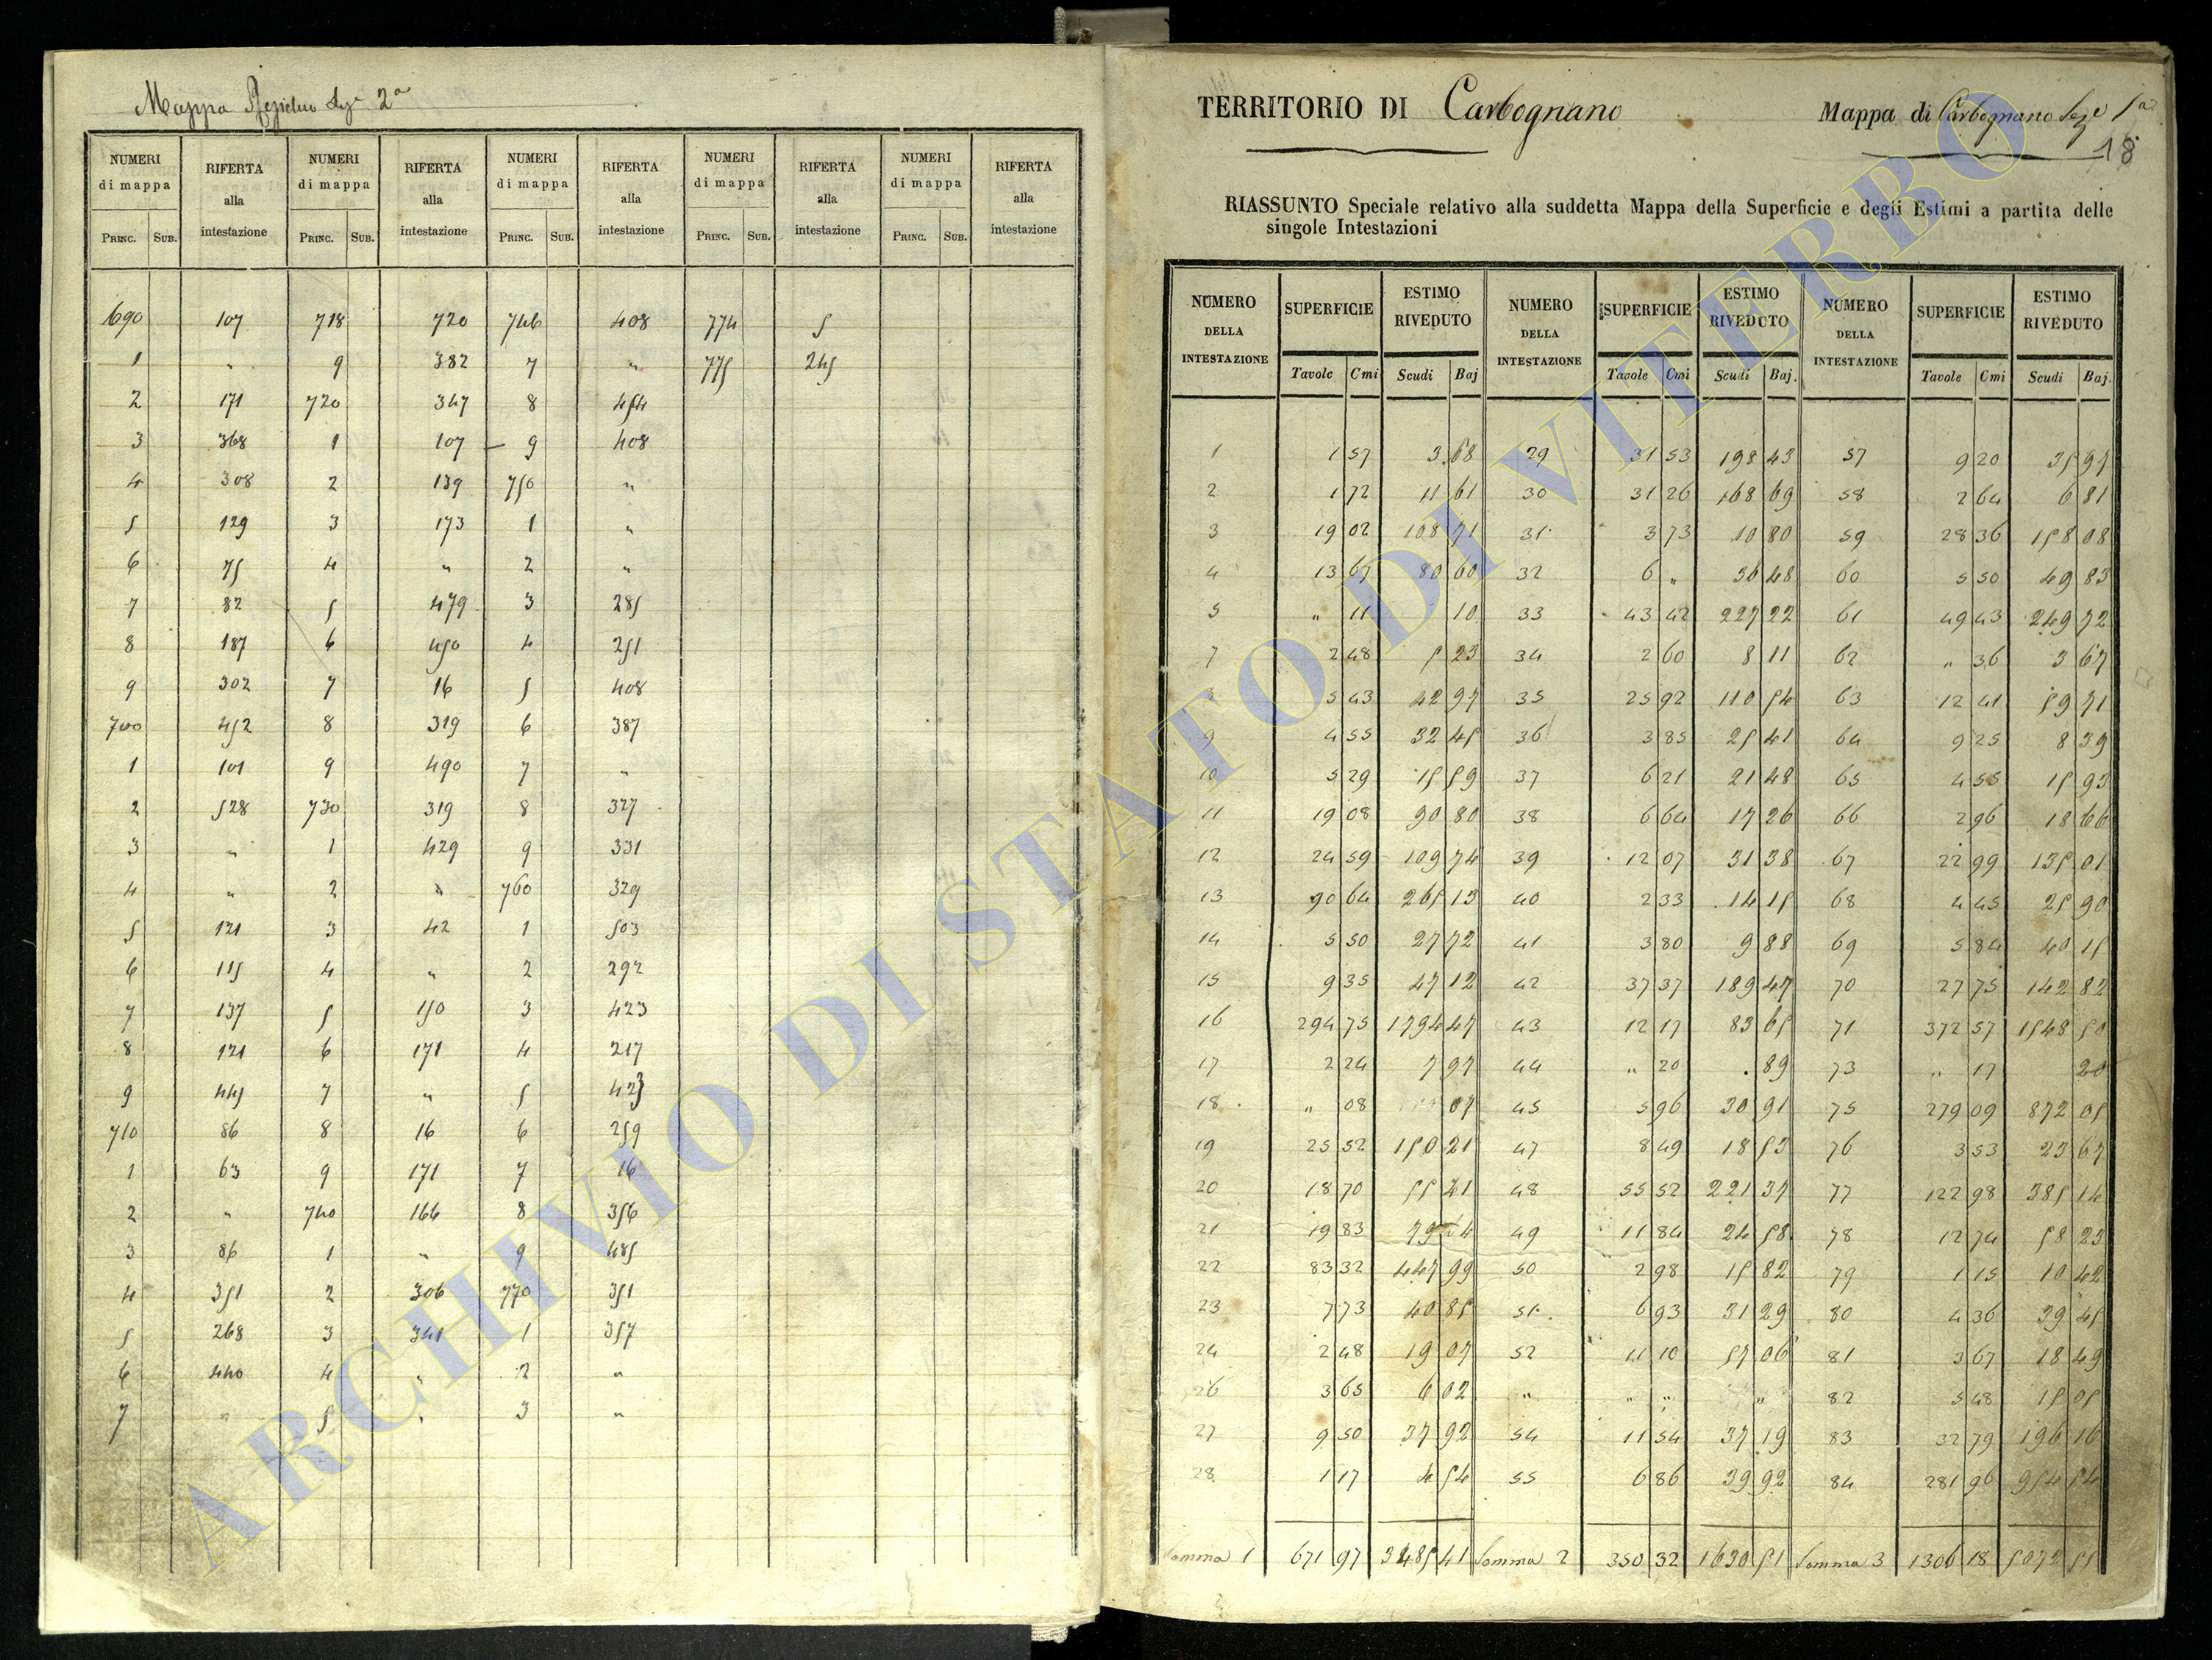 Mappa Sezi 2a
NUMERI di mappa RIFERTA alla intestazione NUMERI di mappa RIFERTA alla intestazione NUMERI di mappa RIFERTA alla intestazione NUMERI di mappa RIFERTA alla intestazione NUMERI di mappa RIFERTA alla intestazione
PRINC. SUB. PRINC. SUB. PRINC. SUB. PRINC. SUB. PRINC. SUB.
690 107 718 720 746 408 774 5
1 " 9 382 7 " 775 245
2 171 720 347 8 454
3 368 1 107 9 408
4 308 2 139 750 "
5 129 3 173 1 "
6 75 4 " 2 "
7 82 5 479 3 285
8 187 6 450 4 251
9 302 7 16 5 408
700 452 8 319 6 387
1 101 9 490 7 "
2 528 730 319 8 327
3 " 1 429 9 331
4 " 2 " 760 329
5 121 3 42 1 503
6 115 4 " 2 292
7 137 5 150 3 423
8 121 6 171 4 217
9 445 7 " 5 423
710 86 8 16 6 259
1 63 9 171 7 16
2 " 740 166 8 356
3 86 1 " 9 485
4 351 2 306 770 351
5 268 3 341 1 357
6 440 4 " 2 "
7 " 5 " 3 "
TERRITORIO DI Carbognano Mappa di Carbognano Seze 1a
18
RIASSUNTO Speciale relativo alla suddetta Mappa della Superficie e degli Estimi a partita delle
singole Intestazioni
NUMERO DELLA INTESTAZIONE SUPERFICIE ESTIMO RIVEDUTO NUMERO DELLA INTESTAZIONE SUPERFICIE ESTIMO RIVEDUTO NUMERO DELLA INTESTAZIONE SUPERFICIE ESTIMO RIVEDUTO
Tavole Cmi Scudi Baj Tavole Cmi Scudi Baj. Tavole Cmi Scudi Baj.
1 1 57 3 68 29 31 53 198 43 57 9 20 35 97
2 1 72 11 61 30 31 26 168 69 58 2 64 6 81
3 19 02 108 71 31 3 73 10 80 59 28 36 158 08
4 13 67 80 60 32 6 " 36 48 60 5 50 49 83
5 " 11 10 33 43 42 227 22 61 49 43 249 72
7 2 48 5 23 34 2 60 8 11 62 " 36 3 67
8 5 43 42 97 35 25 92 110 54 63 12 41 59 71
9 4 55 32 45 36 3 85 25 41 64 9 25 8 39
10 5 29 15 59 37 6 21 21 48 65 4 55 15 93
11 19 08 90 80 38 6 64 17 26 66 2 96 18 66
12 24 59 109 74 39 12 07 31 38 67 22 99 135 01
13 90 64 265 13 40 2 33 14 15 68 4 45 25 90
14 5 50 27 72 41 3 80 9 88 69 5 84 40 15
15 9 35 47 12 42 37 37 189 47 70 27 75 142 82
16 294 75 1794 47 43 12 17 83 65 71 372 57 1548 50
17 2 24 7 97 44 " 20 89 73 " 17 20
18 " 08 07 45 5 96 30 91 75 279 09 872 05
19 25 52 150 21 47 8 49 18 53 76 3 53 23 67
20 18 70 55 41 48 55 52 221 37 77 122 98 385 14
21 19 83 79 49 11 84 24 58 78 12 74 58 23
22 83 32 447 99 50 2 98 15 82 79 1 15 10 42
23 7 73 40 85 51 6 93 31 29 80 4 36 39 45
24 2 48 19 07 52 11 10 57 06 81 3 67 18 49
26 3 65 6 02 " " " " 82 5 48 15 05
27 9 50 37 92 54 11 54 37 19 83 32 79 196 16
28 1 17 4 54 55 6 86 39 92 84 281 96 954 54
Somma 1 671 97 3485 41 Somma 2 350 32 1630 51 Somma 3 1306 18 5072 55
ARCHIVIO DI STATO DI VITERBO